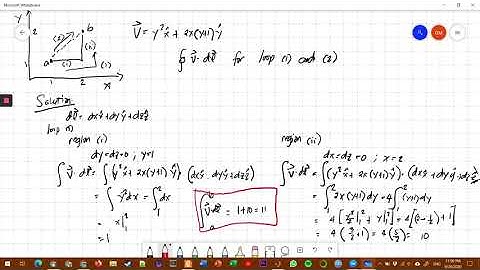 Microsoft Whiteboard
y
2
1
(2)
b
a
(1)
(1)
1
2
x
V = y² x̂ + 2x(y+1) ŷ
∮ V · dl for loop (1) and (2)
Solution
dl = dx x̂ + dy ŷ + dz ẑ
loop (1)
region (i)
dy = dz = 0 ; y=1
∫ V · dl = ∫ (y² x̂ + 2x(y+1) ŷ) · (dx x̂ + dy ŷ + dz ẑ)
= ∫ y² dx = ∫₁² dx
= x|₁²
= 1
∫ₐᵇ V · dl = 1+10 = 11
region (ii)
dx = dz = 0 ; x=2
∫ V · dl = ∫ (y² x̂ + 2x(y+1) ŷ) · (dx x̂ + dy ŷ + dz ẑ)
= ∫₁² 2x(y+1) dy = 4 ∫₁² (y+1) dy
= 4 [y²/2 |₁² + y|₁²] = 4[(2 - ½) + 1]
= 4 (3/2 + 1) = 4 (5/2) = 10
OM
ENG